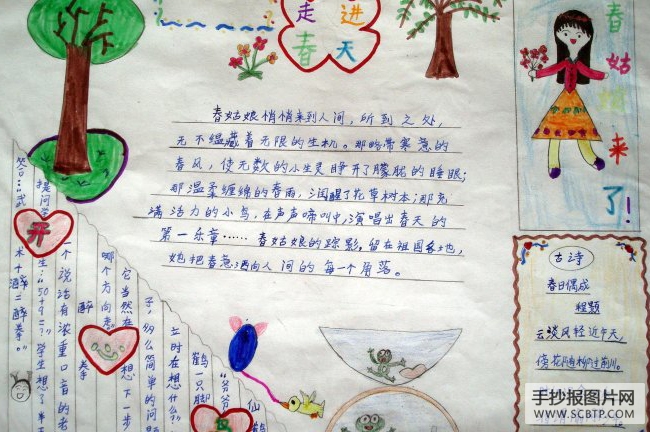 走进
春天
春姑娘来了!
春姑娘悄悄来到人间,所到之处,
无不蕴藏着无限的生机。那饱常寒意的
春风,使无数的小生灵睁开了朦胧的睡眼;
那温柔缠绵的春雨,润醒了花草树木;那充
满活力的小鸟,在声声啼叫中,演唱出春天的
第一乐章……春姑娘的踪影,留在祖国各地,
她把春意洒向人间的每一个角落。
古诗
春日偶成
程颢
云淡风轻近午天,
傍花随柳过前川。
开
仙鹤
鹤一只脚
立时在想什么?
"爷爷
子,那么简单的问题
它当然在想下一步
哪个方向
醉拳
一个说话有浓重口音的老
提问学生:"50+9=?"学生想了半天
答:"武术+醉=醉拳。"
手抄报图片网
WWW.SCBTP.COM